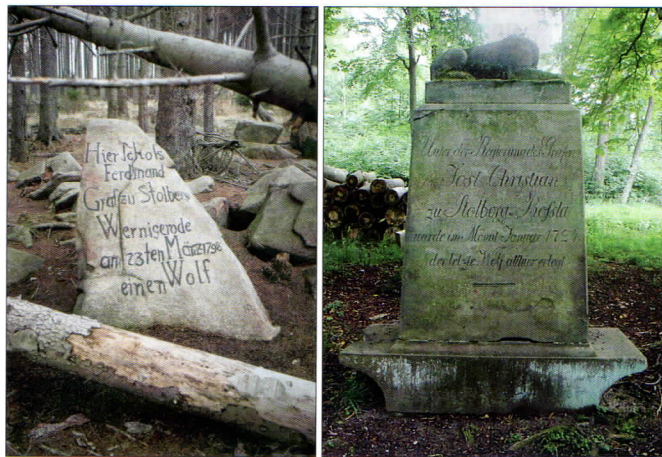 Hier schoß
Ferdinand
Graf zu Stolberg
Wernigerode
an 23ten März 1798
einen Wolf
Unter der Regierung des Grafen
Jost Christian
zu Stolberg-Roßla
wurde im Monat Januar 1724
der letzte Wolf allhier erlegt